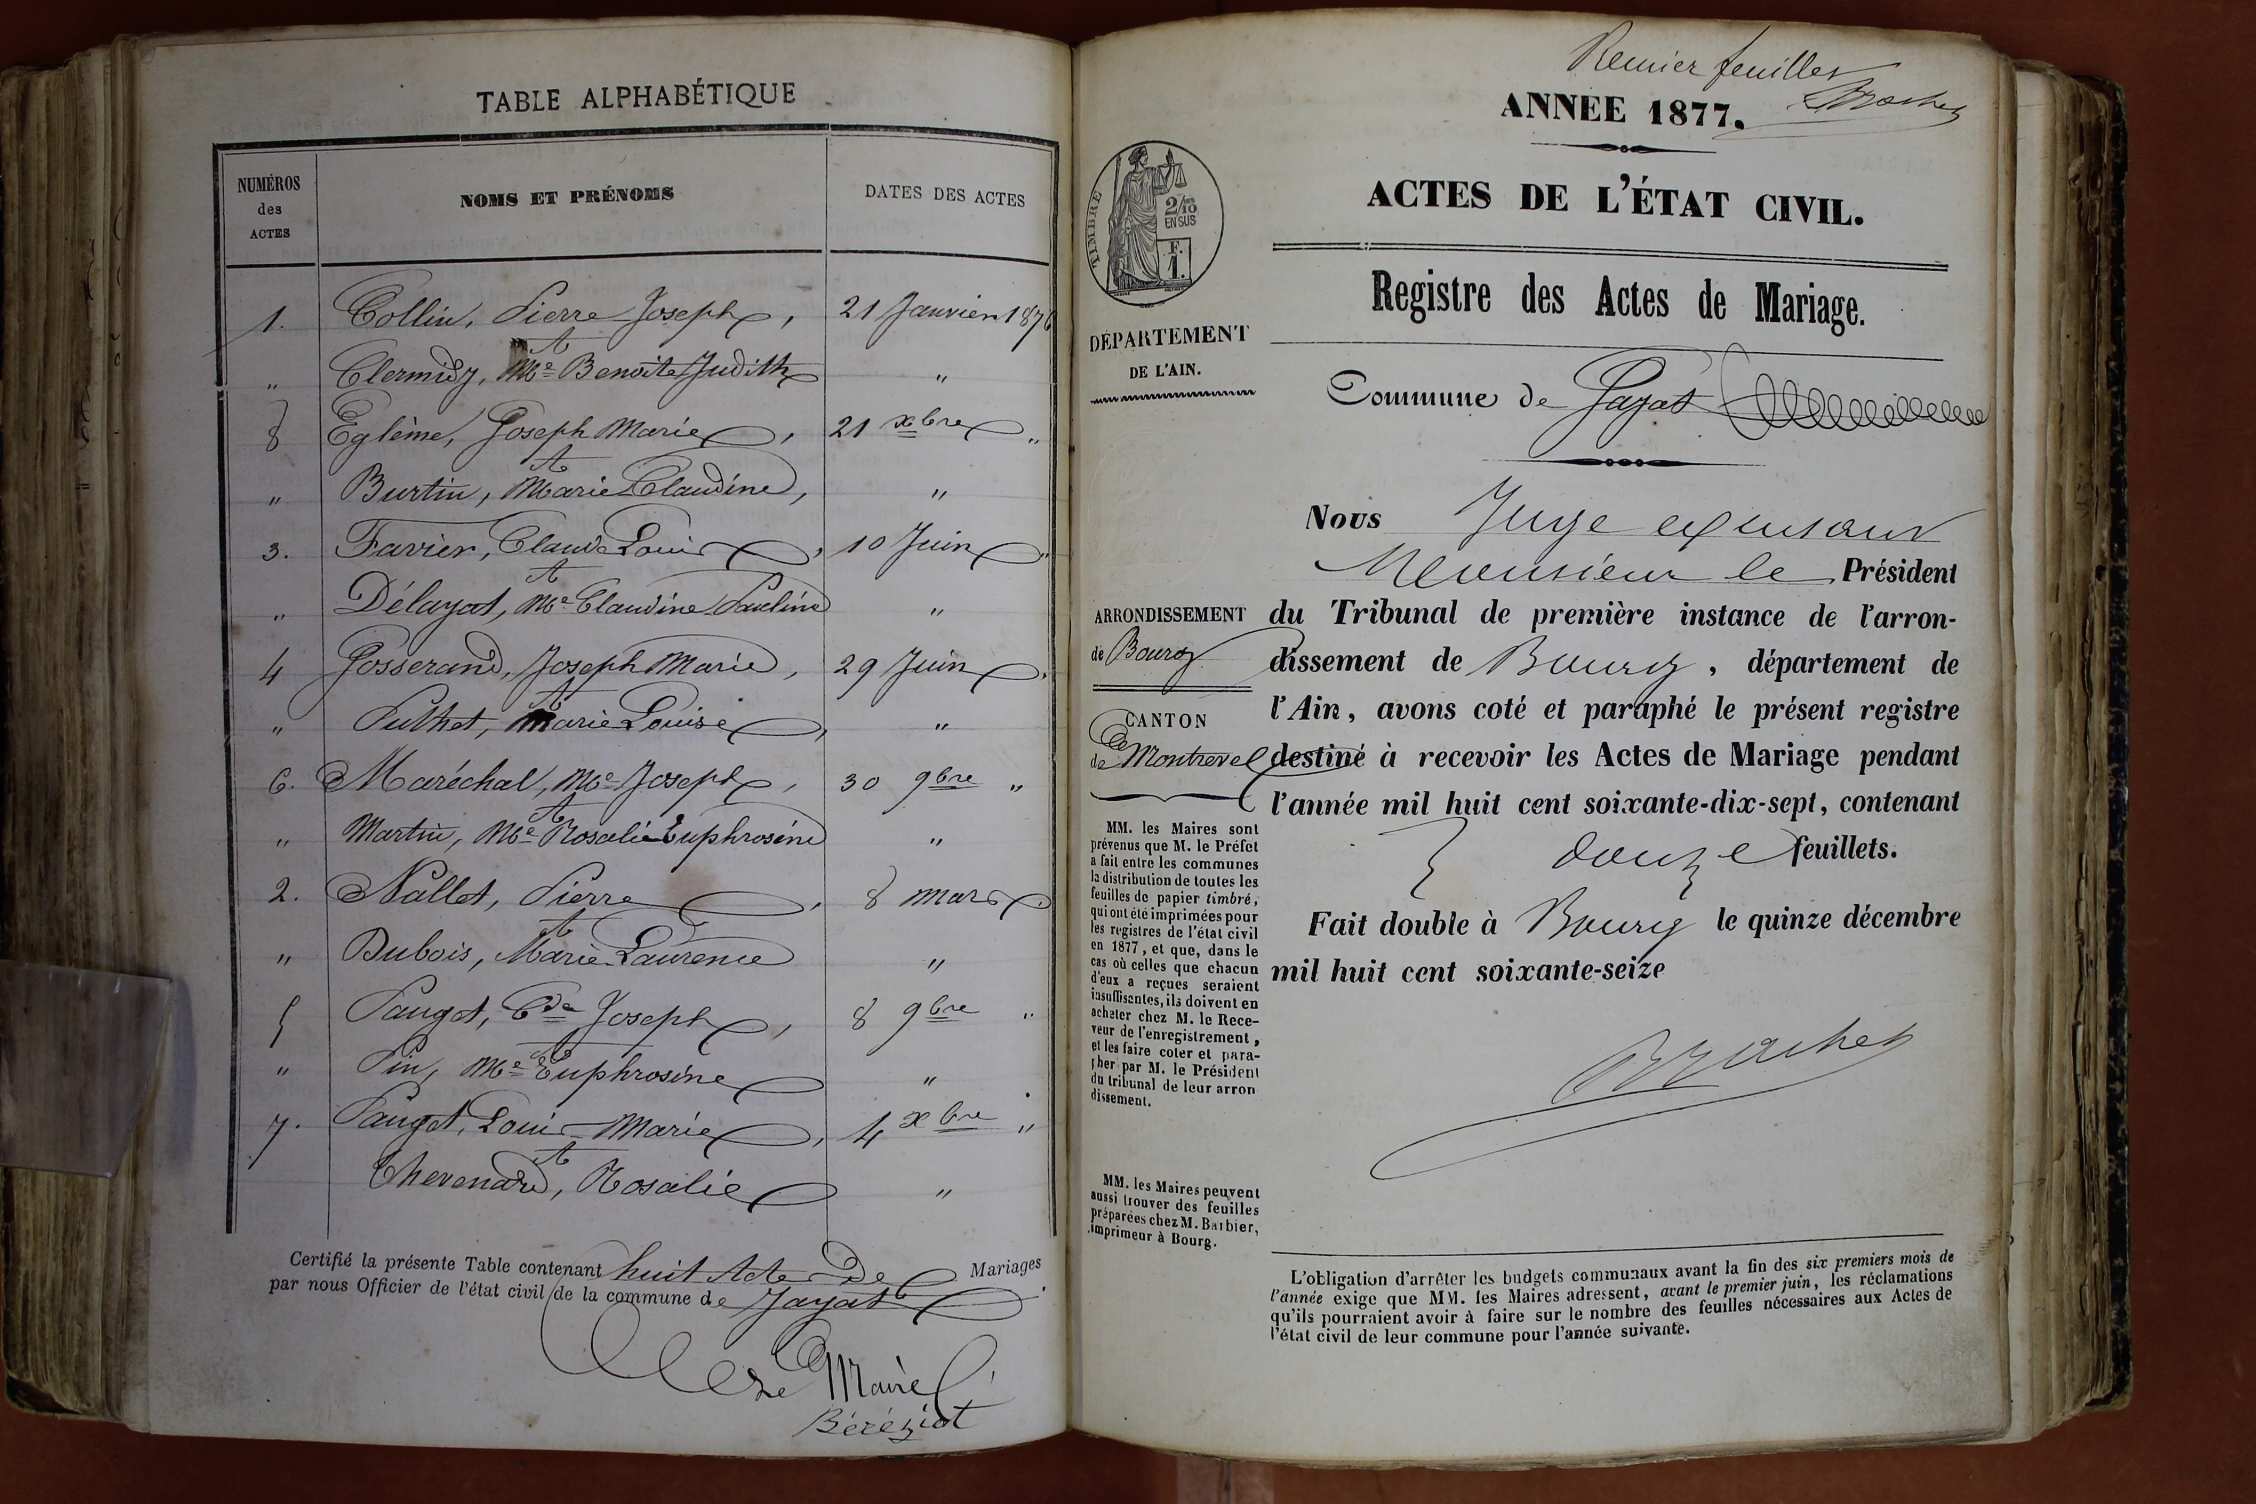 TABLE ALPHABÉTIQUE
NUMÉROS des ACTES
NOMS ET PRÉNOMS
DATES DES ACTES
1. Collin, Pierre Joseph, 21 Janvier 1876
&
" Clermidy, Mie Benoite Judith "
8 Eglème, Joseph Marie, 21 xbre "
&
" Burtin, Marie Claudine, "
3. Favier, Claude Louis, 10 Juin "
&
" Délayat, Mie Claudine Pauline "
4 Josserand, Joseph Marie, 29 Juin "
&
" Puthet, Marie Louise, "
6. Maréchal, Mie Joseph, 30 9bre "
&
" Martin, Mie Rosalie Euphrosine "
2. Nallet, Pierre, 8 mars "
&
" Dubois, Marie Laurence "
5 Pauget, Cde Joseph, 8 9bre "
&
" Pin, Mie Euphrosine "
7. Pauget, Louis Marie, 4 xbre "
&
Chevenard, Rosalie "
Certifié la présente Table contenant huit Actes De Mariages
par nous Officier de l'état civil de la commune de Jayat
Le Maire
Béréziat
Premier feuillet
Brochet
ANNÉE 1877.
ACTES DE L'ÉTAT CIVIL.
Registre des Actes de Mariage.
Commune de Jayat
TIMBRE
2/10 EN SUS
F.
1.
DÉPARTEMENT
DE L'AIN.
ARRONDISSEMENT
de Bourg
CANTON
de Montrevel
MM. les Maires sont
prévenus que M. le Préfet
a fait entre les communes
la distribution de toutes les
feuilles de papier timbré,
qui ont été imprimées pour
les registres de l'état civil
en 1877, et que, dans le
cas où celles que chacun
d'eux a reçues seraient
insuffisantes, ils doivent en
acheter chez M. le Rece-
veur de l'enregistrement,
et les faire coter et para-
pher par M. le Président
du tribunal de leur arron
dissement.
MM. les Maires peuvent
aussi trouver des feuilles
préparées chez M. Barbier,
imprimeur à Bourg.
Nous Juge
Monsieur le Président
du Tribunal de première instance de l'arron-
dissement de Bourg, département de
l'Ain, avons coté et paraphé le présent registre
destiné à recevoir les Actes de Mariage pendant
l'année mil huit cent soixante-dix-sept, contenant
douze feuillets.
Fait double à Bourg le quinze décembre
mil huit cent soixante-seize
Brochet
L'obligation d'arrêter les budgets communaux avant la fin des six premiers mois de
l'année exige que MM. les Maires adressent, avant le premier juin, les réclamations
qu'ils pourraient avoir à faire sur le nombre des feuilles nécessaires aux Actes de
l'état civil de leur commune pour l'année suivante.